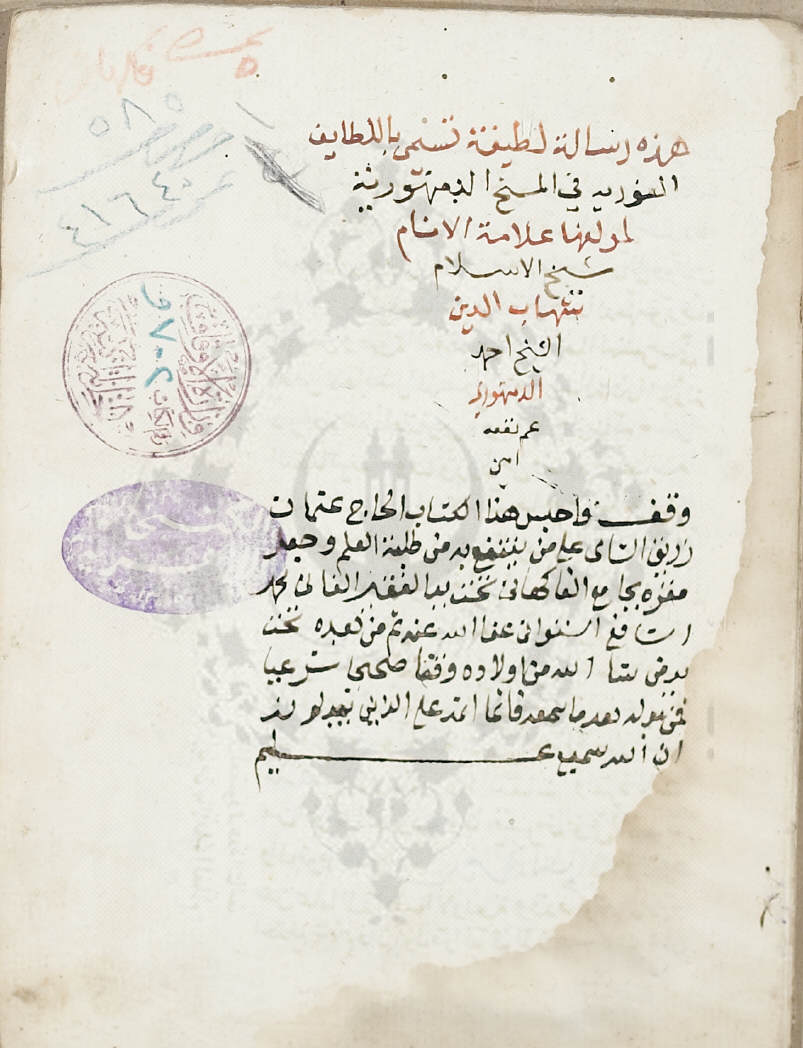 ٥٨٥
٤١٦٤٠
هذه رسالة لطيفة تسمى باللطايف
النورية في المنح الدمنهورية
لمولفها علامة الانام
شيخ الاسلام
شهاب الدين
الشيخ احمد
الدمنهوري
عم نفعه
امين
وقف واحبس هذا الكتاب الحاج عثمان
على من ينتفع به من طلبة العلم وجعل
مقره بجامع الفاكهاني تحت يد الفقير الفاني محمد
عفا الله عنه ثم من بعده تحت
يد من يشا الله من اولاده وقفا صحيحا شرعيا
فمن بدله بعد ما سمعه فانما اثمه على الذين يبدلونه
ان الله سميع عليم